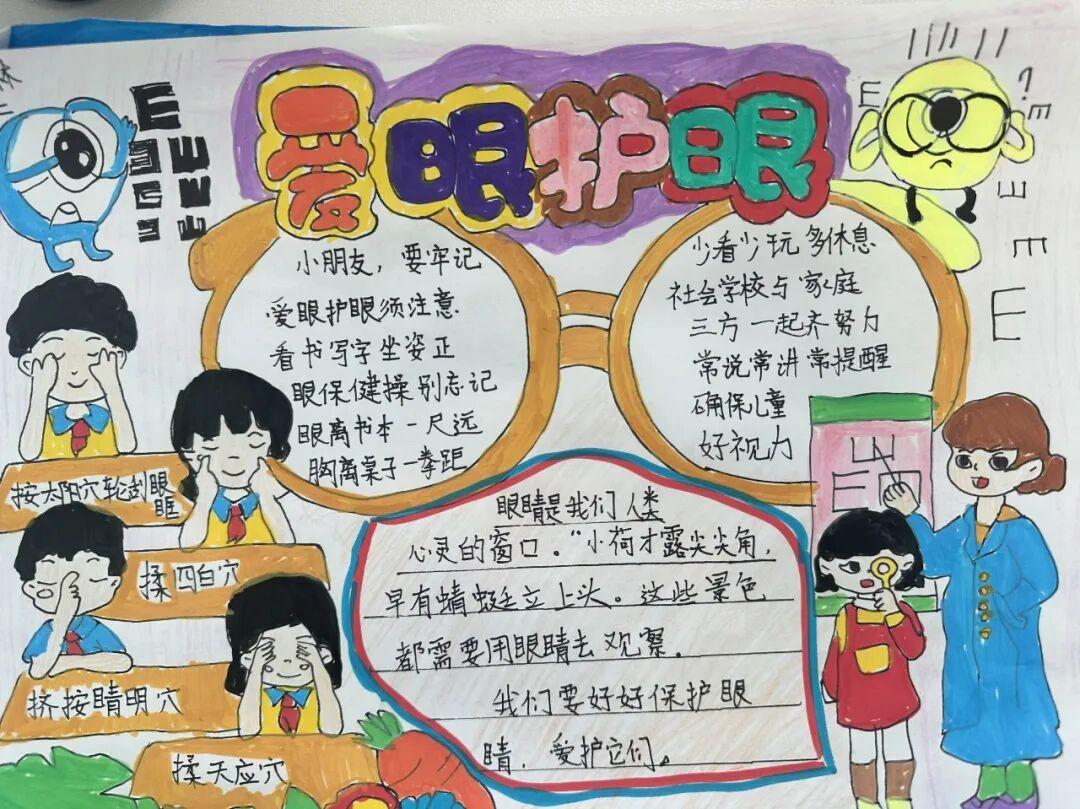 爱眼护眼
小朋友，要牢记
爱眼护眼须注意
看书写字坐姿正
眼保健操别忘记
眼离书本一尺远
胸离桌子一拳距
少看少玩多休息
社会学校与家庭
三方一起齐努力
常说常讲常提醒
确保儿童
好视力
眼睛是我们人类
心灵的窗口。“小荷才露尖尖角，
早有蜻蜓立上头。这些景色
都需要用眼睛去观察。
我们要好好保护眼
睛，爱护它们。
按太阳穴轮刮眼
眶
揉四白穴
挤按睛明穴
揉天应穴
E
E
E
E
E
E
E
?